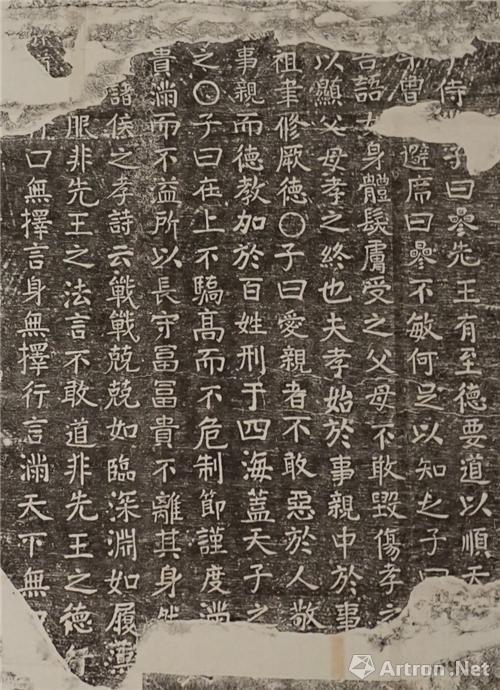 侍子曰參先王有至德要道以順天
曾避席曰參不敏何足以知之子曰
語身體髮膚受之父母不敢毀傷孝之
以顯父母孝之終也夫孝始於事親中於事
祖筆修厥德〇子曰愛親者不敢惡於人敬
事親而德教加於百姓刑于四海蓋天子之
之〇子曰在上不驕高而不危制節謹度滿
貴滿而不益所以長守冨冨貴不離其身然
諸侯之孝詩云戰戰兢兢如臨深淵如履薄
服非先王之法言不敢道非先王之德行
口無擇言身無擇行言滿天下無
Artron.Net